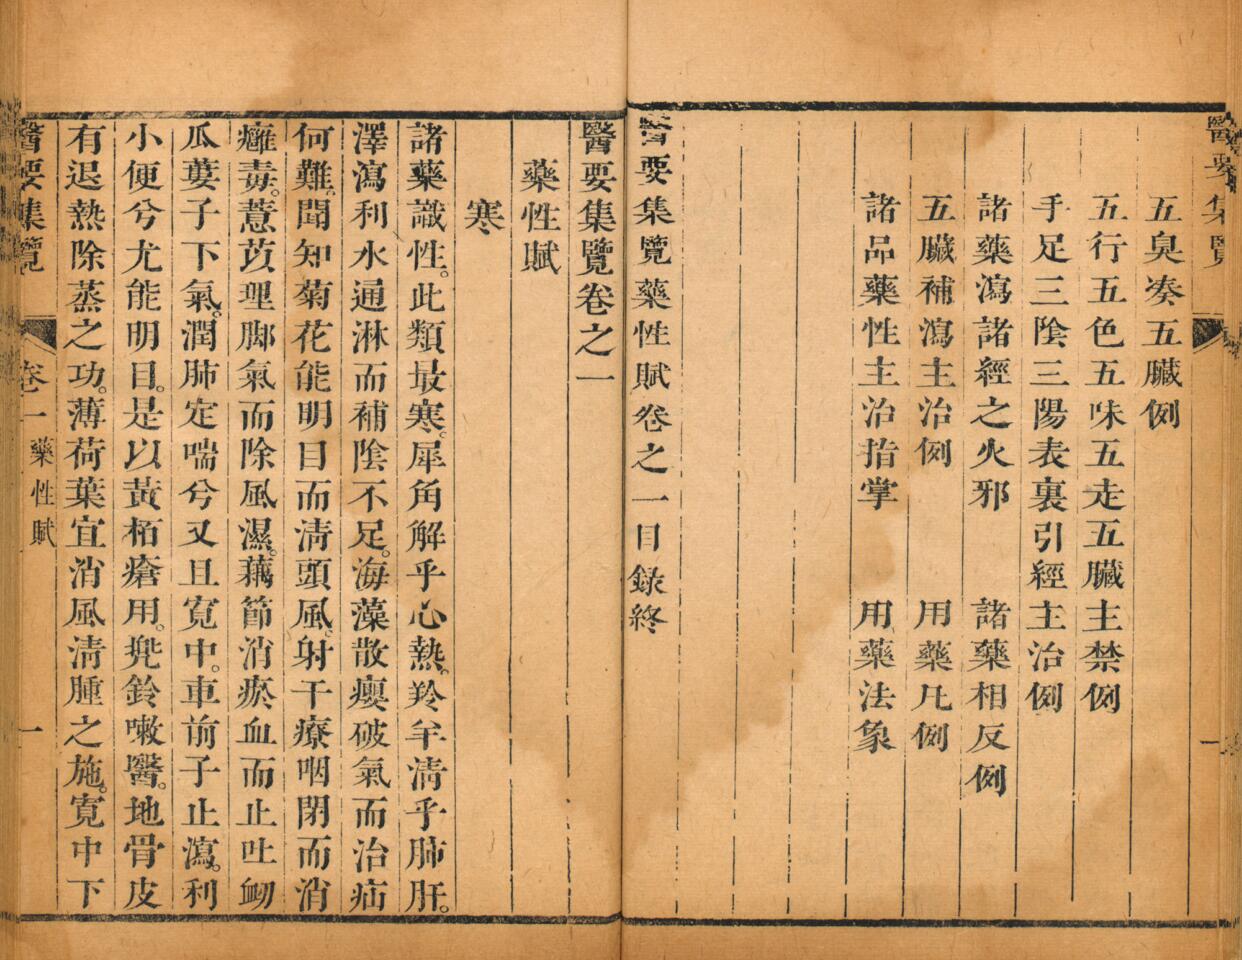 醫要集覽
一
五臭凑五臟例
五行五色五味五走五臟主禁例
手足三陰三陽表裏引經主治例
諸藥瀉諸經之火邪　諸藥相反例
五臟補瀉主治例　用藥凡例
諸品藥性主治指掌　用藥法象
醫要集覽藥性賦卷之一目録終
醫要集覽卷之一
藥性賦
寒
諸藥識性。此類最寒。犀角解乎心熱。羚羊清乎肺肝。
澤瀉利水通淋而補陰不足。海藻散癭破氣而治疝
何難。聞知菊花能明目而清頭風。射干療咽閉而消
癰毒。薏苡理脚氣而除風濕。藕節消瘀血而止吐衂
瓜蔞子下氣。潤肺定喘兮又且寬中。車前子止瀉。利
小便兮尤能明目。是以黃栢瘡用。兠鈴嗽醫。地骨皮
有退熱除蒸之功。薄荷葉宜消風清腫之施。寬中下
醫要集覽
卷一
藥性賦
一